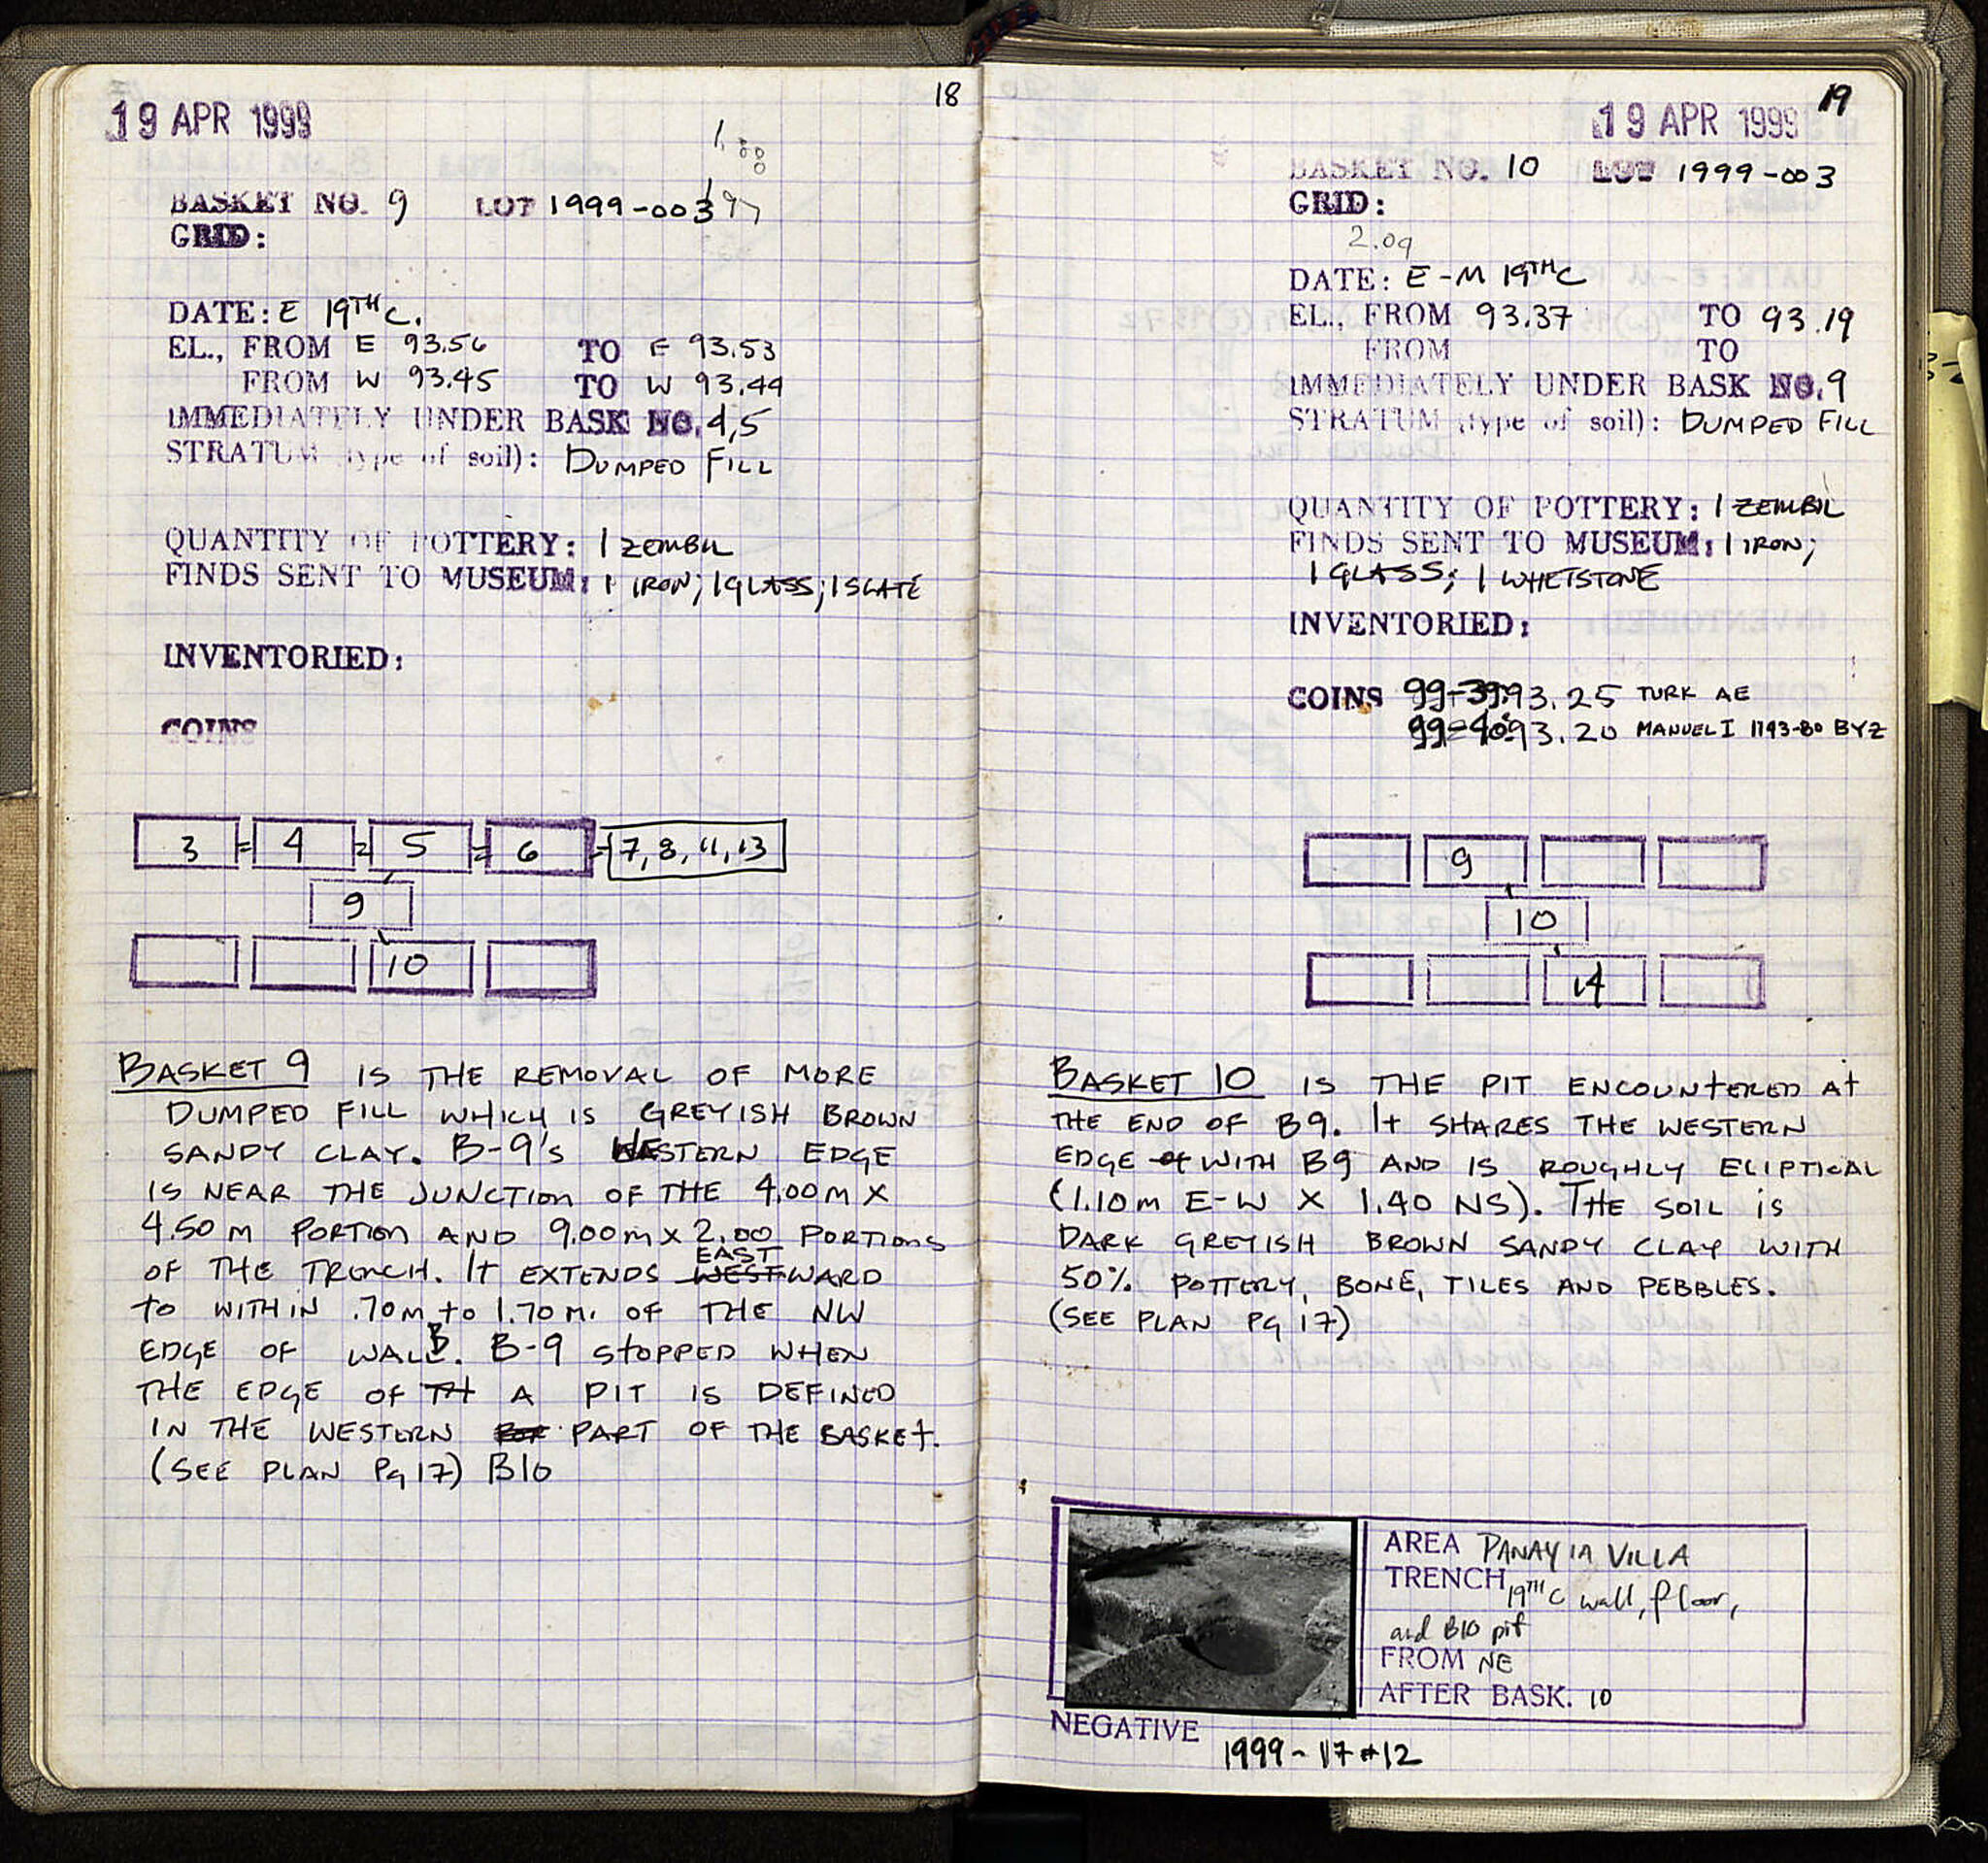 18
19 APR 1999
BASKET NO. 9 LOT 1999-003
GRID:
DATE: E 19TH C.
EL., FROM E 93.56 TO E 93.53
FROM W 93.45 TO W 93.44
IMMEDIATELY UNDER BASK NO. 4,5
STRATUM (type of soil): DUMPED FILL
QUANTITY OF POTTERY: 1 ZEMBIL
FINDS SENT TO MUSEUM: 1 IRON; 1 GLASS; 1 SLATE
INVENTORIED:
COINS
3 = 4 = 5 = 6 = 7, 8, 11, 13
9
10
BASKET 9 IS THE REMOVAL OF MORE
DUMPED FILL WHICH IS GREYISH BROWN
SANDY CLAY. B-9's WESTERN EDGE
IS NEAR THE JUNCTION OF THE 4.00 m X
4.50 m PORTION AND 9.00 m x 2.00 PORTIONS
OF THE TRENCH. It EXTENDS WEST EASTWARD
to WITHIN .70 m to 1.70 m. OF THE NW
EDGE OF WALL B. B-9 STOPPED WHEN
THE EDGE OF TH A PIT IS DEFINED
IN THE WESTERN PART OF THE BASKET.
(SEE PLAN Pg 17) B10
19
19 APR 1999
BASKET NO. 10 LOT 1999-003
GRID:
2.09
DATE: E-M 19TH C
EL., FROM 93.37 TO 93.19
FROM TO
IMMEDIATELY UNDER BASK NO. 9
STRATUM (type of soil): DUMPED FILL
QUANTITY OF POTTERY: 1 ZEMBIL
FINDS SENT TO MUSEUM: 1 IRON;
1 GLASS; 1 WHETSTONE
INVENTORIED:
COINS 99-39: 93.25 TURK AE
99-40: 93.20 MANUEL I 1143-80 BYZ
9
10
14
BASKET 10 IS THE PIT ENCOUNTERED At
THE END OF B9. It SHARES THE WESTERN
EDGE of WITH B9 AND IS ROUGHLY ELIPTICAL
(1.10 m E-W X 1.40 NS). THE SOIL is
DARK GREYISH BROWN SANDY CLAY WITH
50% POTTERY, BONE, TILES AND PEBBLES.
(SEE PLAN Pg 17)
AREA PANAYIA VILLA
TRENCH 19TH C wall, floor,
and B10 pit
FROM NE
AFTER BASK. 10
NEGATIVE
1999-17 #12